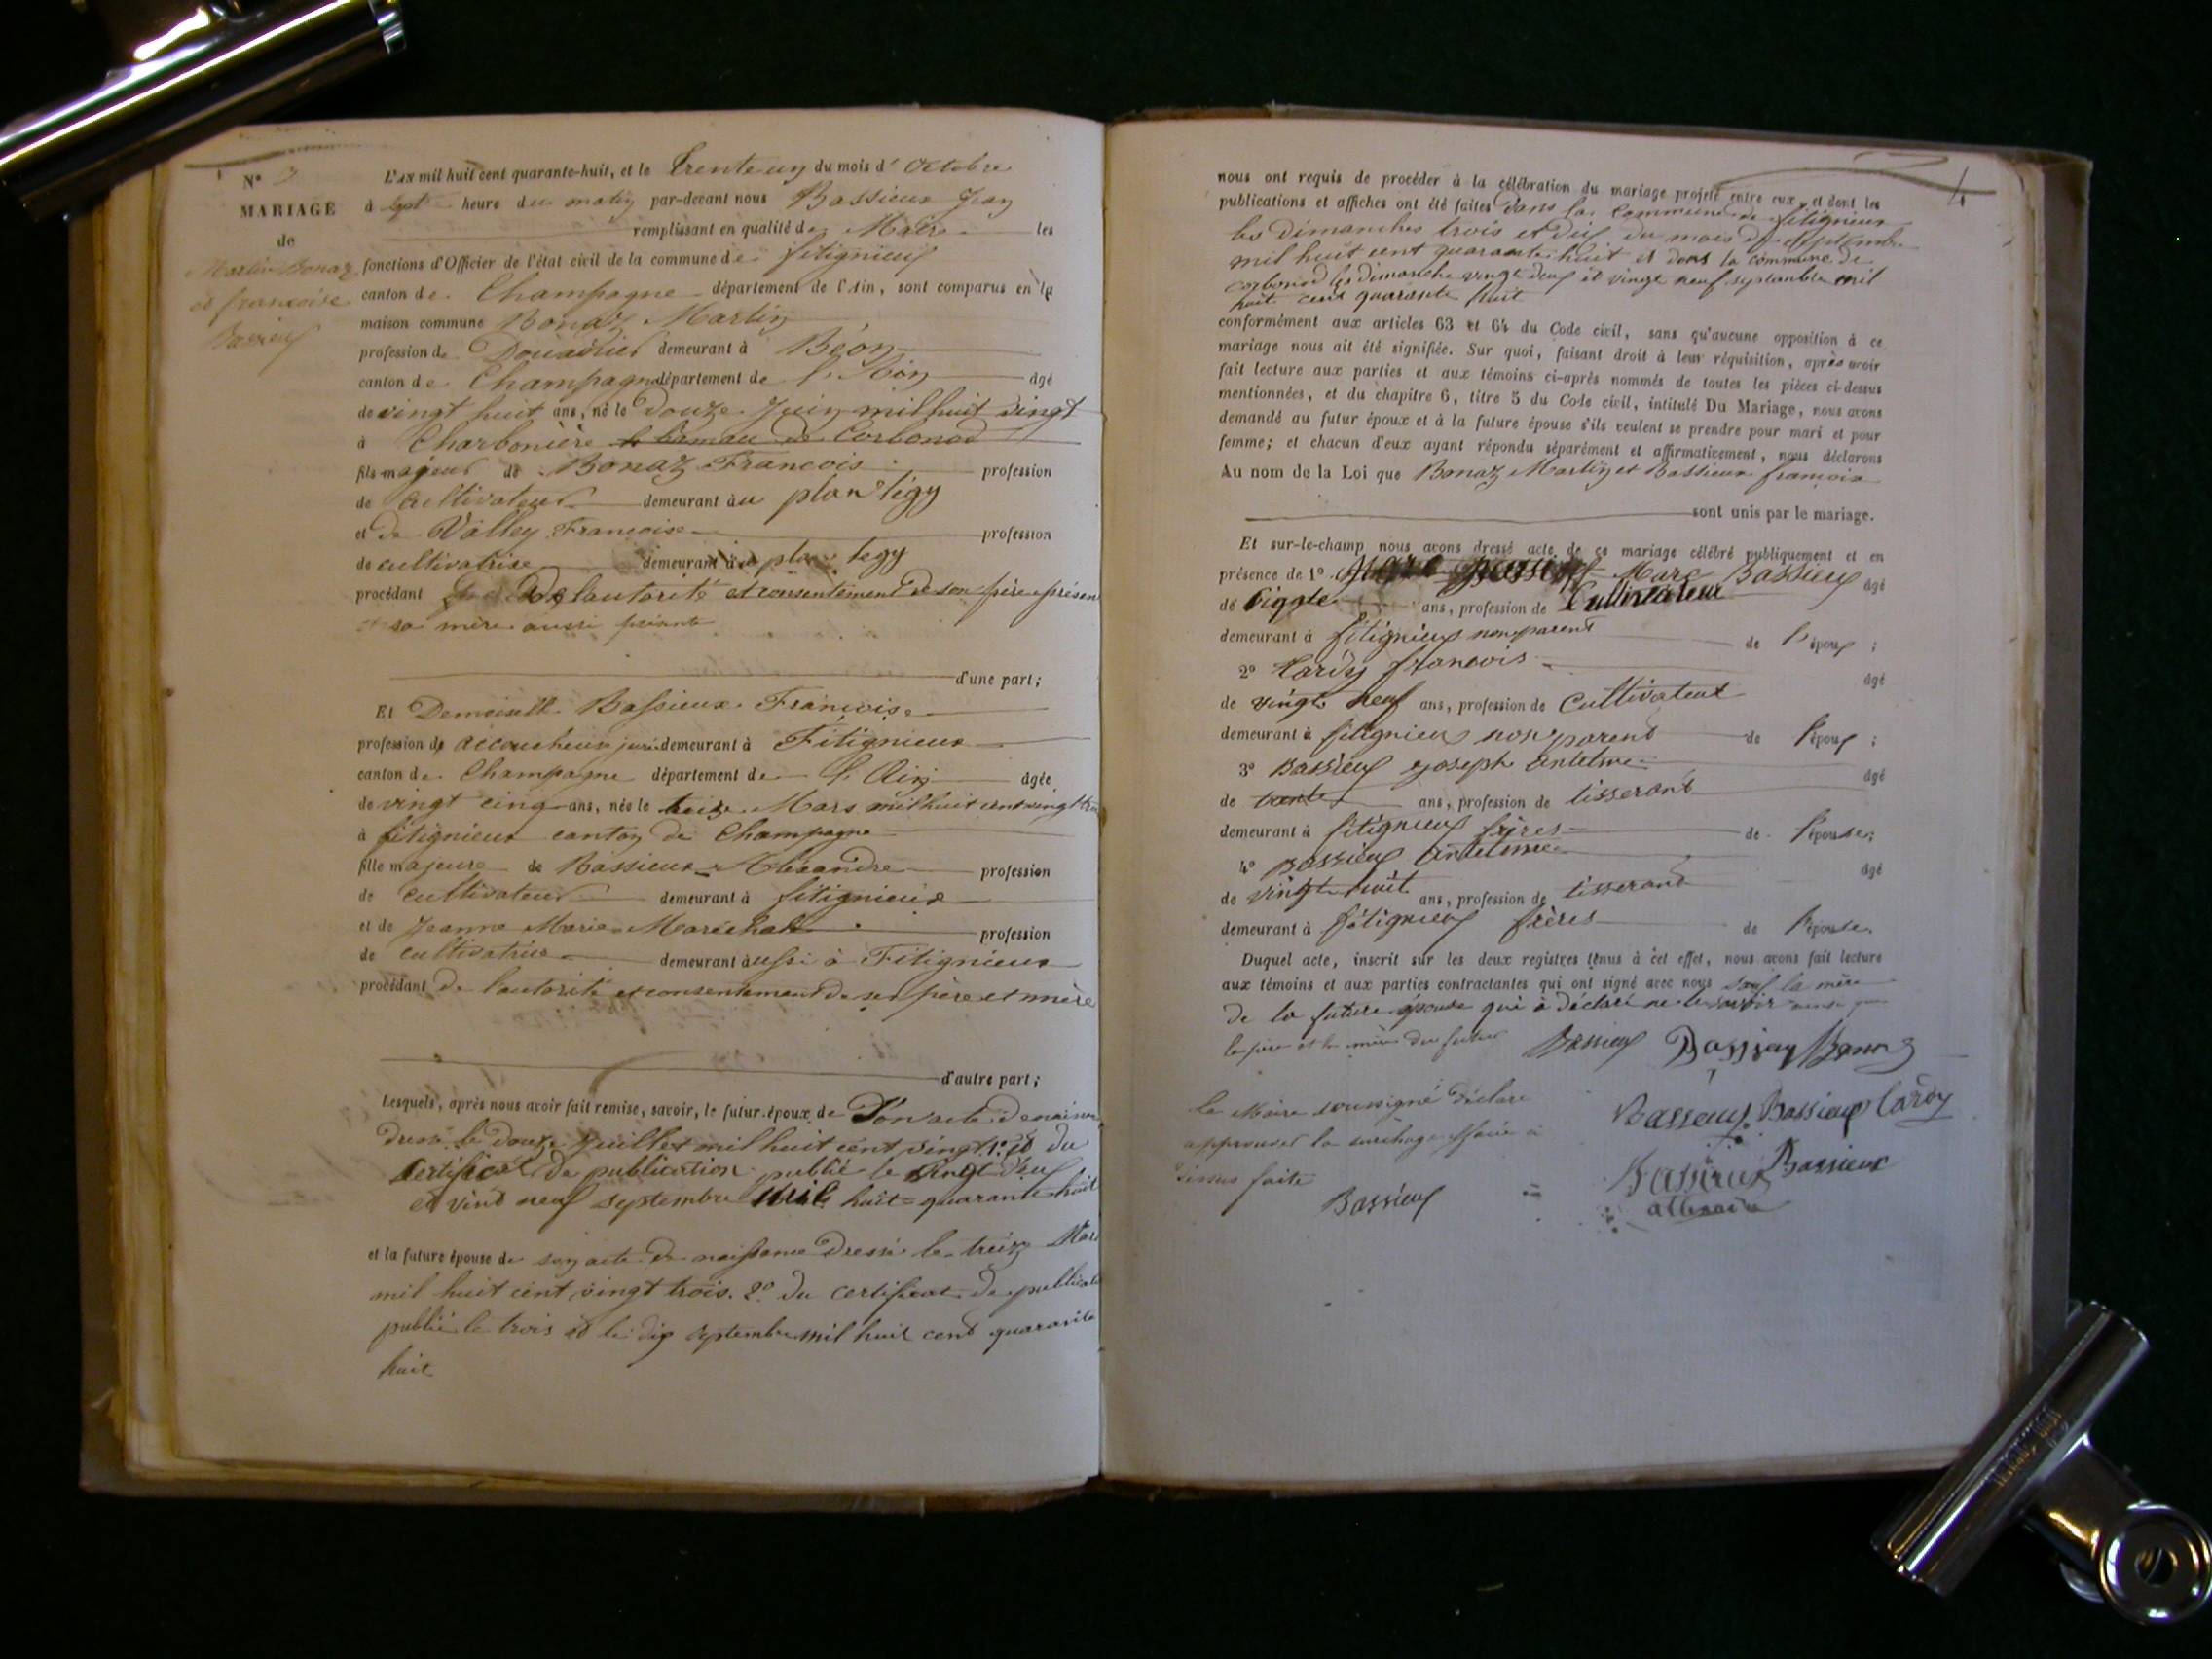 N° 3
MARIAGE
de
Martin Bonaz
et françoise
Bassieux
L'AN mil huit cent quarante-huit, et le Trente un du mois d'Octobre
à sept heure du matin par-devant nous Bassieux Jean
remplissant en qualité de Maire les
fonctions d'Officier de l'état civil de la commune de fitignieux
canton de Champagne département de l'Ain, sont comparus en la
maison commune Bonaz Martin
profession de Douanier demeurant à Béon
canton de Champagne département de l'Ain âgé
de vingt huit ans, né le Douze Juin mil huit vingt
à Charbonière hameau de Corbonod
fils majeur de Bonaz François profession
de cultivateur demeurant au plan tégy
et de Valley Françoise profession
de cultivatrise demeurant plan tegy
procédant De l'autorité et consentement de son père présent
et sa mère aussi
d'une part;
Et Demoiselle Bassieux Françoise
profession de accoucheuse jurée demeurant à Fitignieux
canton de Champagne département de l'Ain âgée
de vingt cinq ans, née le treize Mars mil huit cent vingt trois
à fitignieux canton de Champagne
fille majeure de Bassieux Alexandre profession
de cultivateur demeurant à fitignieux
et de Jeanne Marie Maréchal profession
de cultivatrice demeurant aussi à Fitignieux
procédant de l'autorité et consentement de ses père et mère
d'autre part;
Lesquels, après nous avoir fait remise, savoir, le futur époux de Son acte de naissance
dressé le douze Juillet mil huit cent vingt 1° du
Certificat de publication publié le vingt deux
et vint neuf septembre mil huit quarante huit
et la future épouse de son acte de naissance Dressé le treize Mars
mil huit cent vingt trois. 2° du certificat de publicat
publié le trois et le dix septembre mil huit cent quarante
huit
4
nous ont requis de procéder à la célébration du mariage projeté entre eux, et dont les
publications et affiches ont été faites dans la commune de fitignieux
les dimanches trois et dix du mois de septembre
mil huit cent quarante huit et dans la commune de
corbonod les dimanche vingt deux et vingt neuf septembre mil
huit cent quarante huit
conformément aux articles 63 et 64 du Code civil, sans qu'aucune opposition à ce
mariage nous ait été signifiée. Sur quoi, faisant droit à leur réquisition, après avoir
fait lecture aux parties et aux témoins ci-après nommés de toutes les pièces ci-dessus
mentionnées, et du chapitre 6, titre 5 du Code civil, intitulé Du Mariage, nous avons
demandé au futur époux et à la future épouse s'ils veulent se prendre pour mari et pour
femme; et chacun d'eux ayant répondu séparément et affirmativement, nous déclarons
Au nom de la Loi que Bonaz Martin et Bassieux françoise
sont unis par le mariage.
Et sur-le-champ nous avons dressé acte de ce mariage célébré publiquement et en
présence de 1° Marc Bassieux âgé
de ans, profession de Cultivateur
demeurant à fitignieux non parent de l'époux;
2° Cardy françois âgé
de vingt neuf ans, profession de Cultivateur
demeurant à fitignieux non parent de l'époux;
3° Bassieux Joseph antelme âgé
de trente ans, profession de tisserant
demeurant à fitignieux frères de l'épouse;
4° Bassieux antelme âgé
de vingt huit ans, profession de tisserand
demeurant à fitignieux frères de l'épouse.
Duquel acte, inscrit sur les deux registres tenus à cet effet, nous avons fait lecture
aux témoins et aux parties contractantes qui ont signé avec nous sauf la mère
de la future épouse qui a déclaré ne le savoir ainsi que
le père et la mère du futur Bassieux Bassieux Bonaz
le Maire soussigné déclare Bassieux Bassieux Cardy
approuver la surchage
dessus faite Bassieux Bassieux
Bassieux